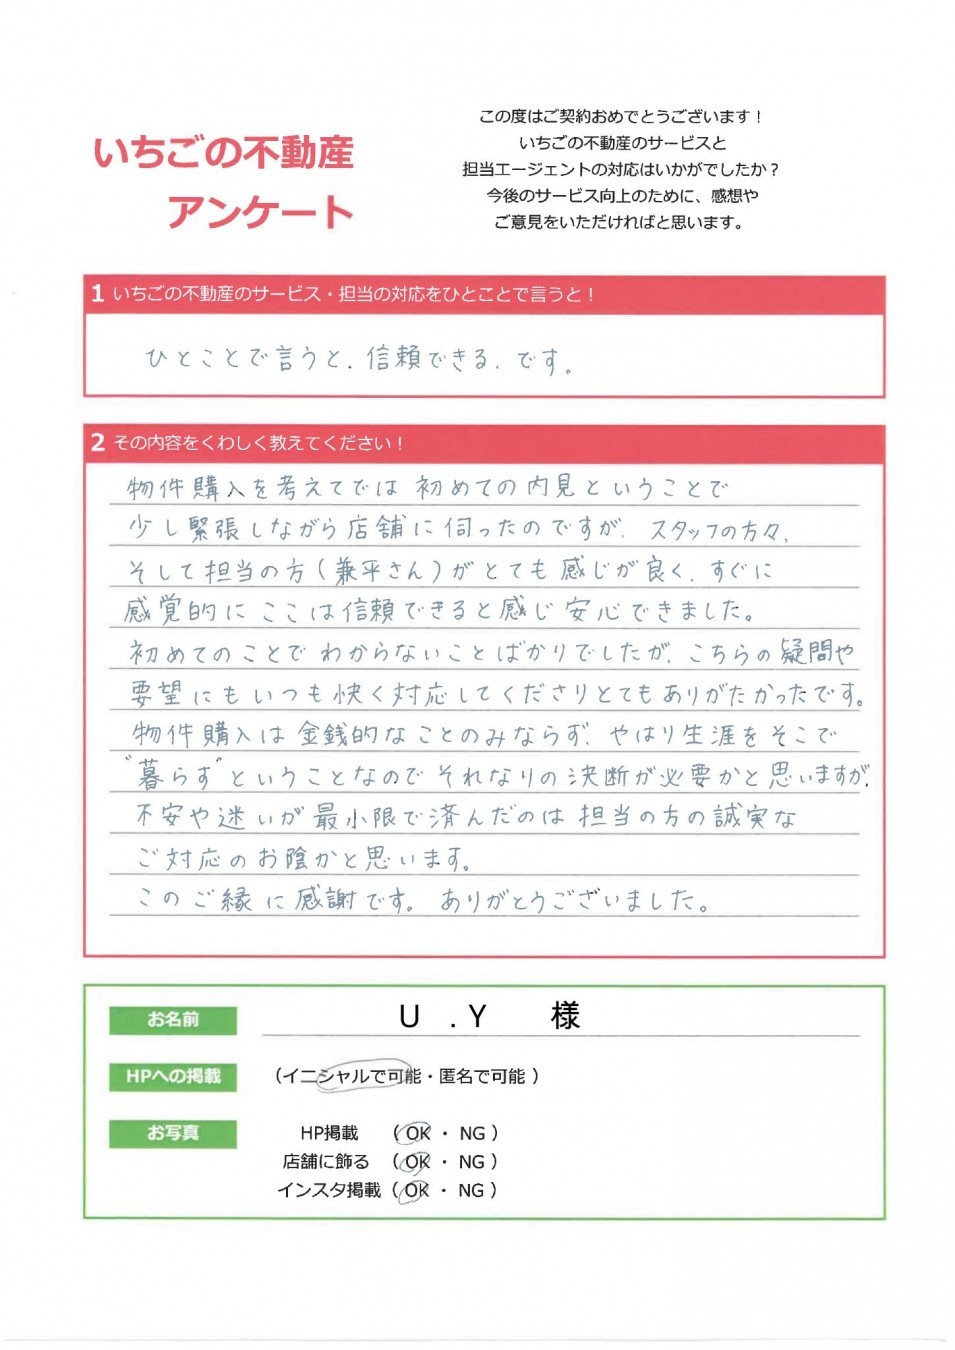 いちごの不動産
アンケート
この度はご契約おめでとうございます！
いちごの不動産のサービスと
担当エージェントの対応はいかがでしたか？
今後のサービス向上のために、感想や
ご意見をいただければと思います。
1 いちごの不動産のサービス・担当の対応をひとことで言うと！
ひとことで言うと、信頼できる、です。
2 その内容をくわしく教えてください！
物件購入を考えてでは初めての内見ということで
少し緊張しながら店舗に伺ったのですが、スタッフの方々、
そして担当の方（兼平さん）がとても感じが良く、すぐに
感覚的にここは信頼できると感じ安心できました。
初めてのことでわからないことばかりでしたが、こちらの疑問や
要望にもいつも快く対応してくださりとてもありがたかったです。
物件購入は金銭的なことのみならず、やはり生涯をそこで
"暮らす"ということなのでそれなりの決断が必要かと思いますが、
不安や迷いが最小限で済んだのは担当の方の誠実な
ご対応のお陰かと思います。
このご縁に感謝です。ありがとうございました。
お名前 U .Y 様
HPへの掲載 （イニシャルで可能・匿名で可能 ）
お写真 HP掲載 （ OK ・ NG ）
店舗に飾る （ OK ・ NG ）
インスタ掲載（ OK ・ NG ）